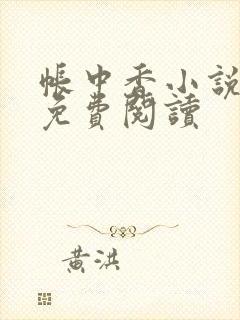 帳中香小說
免費閱讀
黃洪